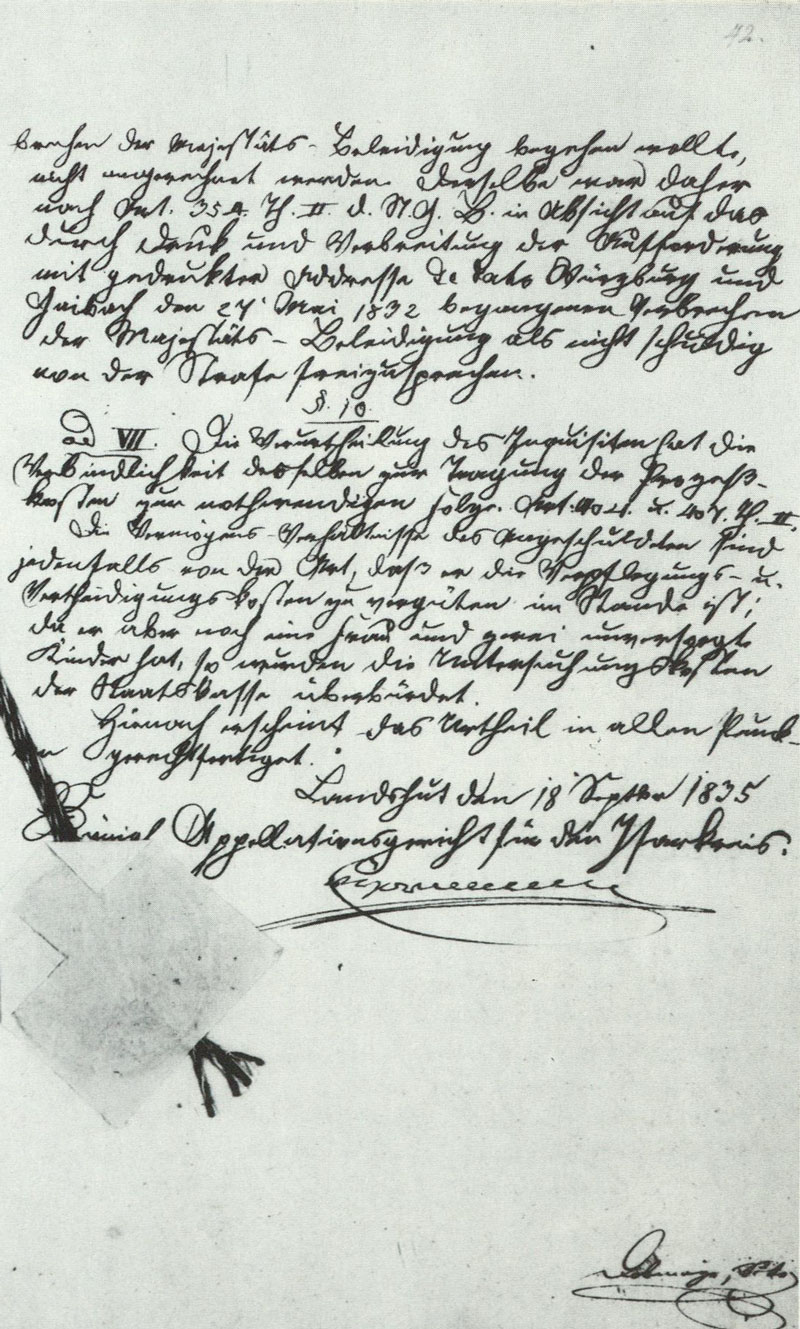 42.
brechen der Majestäts-Beleidigung begehen wollte,
nicht angerechnet werden. Derselbe war daher
nach Art. 354. Th. II. d. St. G. B. in Absicht auf das
durch Druk und Verbreitung der Aufforderung
mit gedrukter Addresse de dato Würzburg und
Gaibach den 27' Mai 1832 begangenen Verbrechen
der Majestäts-Beleidigung als nicht schuldig
von der Strafe freizusprechen.
§. 10.
ad VII. Die Verurtheilung des Inquisiten hat die
Verbindlichkeit desselben zur Tragung der Prozeß-
kosten zur nothwendigen Folge. Art. 404. u. 407. Th. II.
Die Vermögens-Verhältnisse des Angeschuldeten sind
jedenfalls von der Art, daß er die Verpflegungs- u.
Vertheidigungskosten zu vergüten im Stande ist;
da er aber noch eine Frau und zwei unversorgte
Kinder hat, so wurden die Untersuchungskosten
der Staatskasse überbürdet.
Hienach erscheint das Urtheil in allen Punk-
ten gerechtfertiget.
Landshut den 18' Septbr 1835
Appellationsgericht für den Isarkreis.